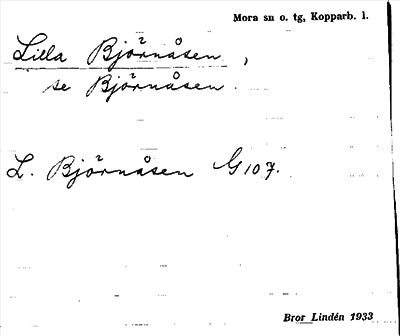 Mora sn o. tg, Kopparb. l.
Lilla Björnåsen,
se Björnåsen.
L. Björnåsen G 107.
Bror Lindén 1933